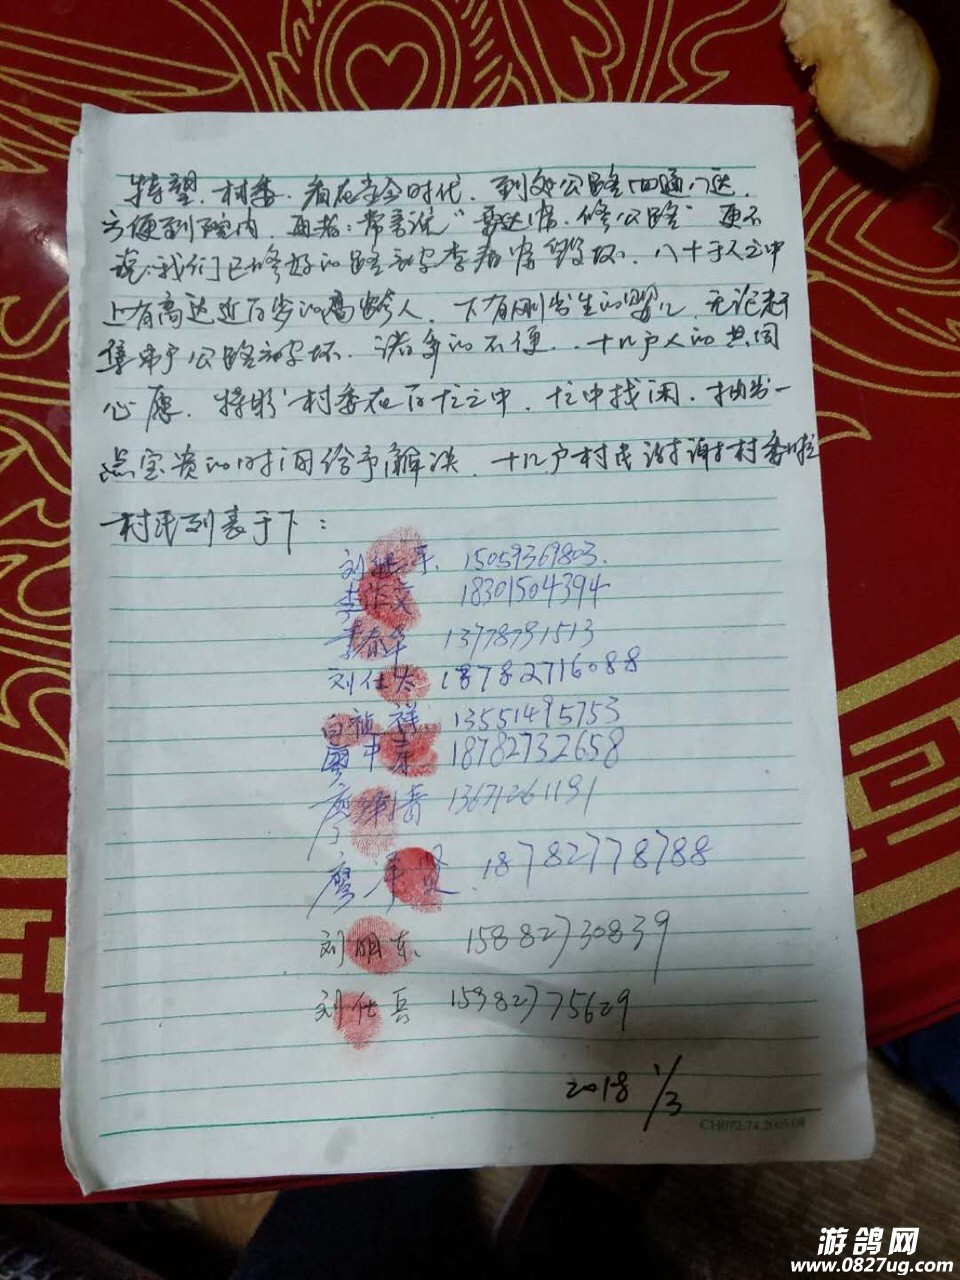 特望. 村委. 看在当今时代. 到处公路四通八达.
方便到院内. 再者: 常言说"要达富. 修公路" 更不
说: 我们已修好的路被李 毁坏. 八十于人之中
上有高达近百岁的高龄人. 下有刚出生的婴儿. 无论老
公路被 坏. 诸多的不便.. 十几户人的共同
心愿. 特 村委在百忙之中. 忙中找闲. 抽出一
点宝贵的时间给予解决. 十几户村民谢谢村委啦
村民列表于下:
刘 平. 15059369803.
李 18301504394
李春华 13778791513
刘仕 18782716088
白祯祥 13551495753
廖中 18782732658
廖 13671261191
廖 贤. 18782778788
刘明东. 15882730839
刘仕兵 15982775629
2018 1/3
CH072.74.2005.08
游鸽网
www.0827ug.com